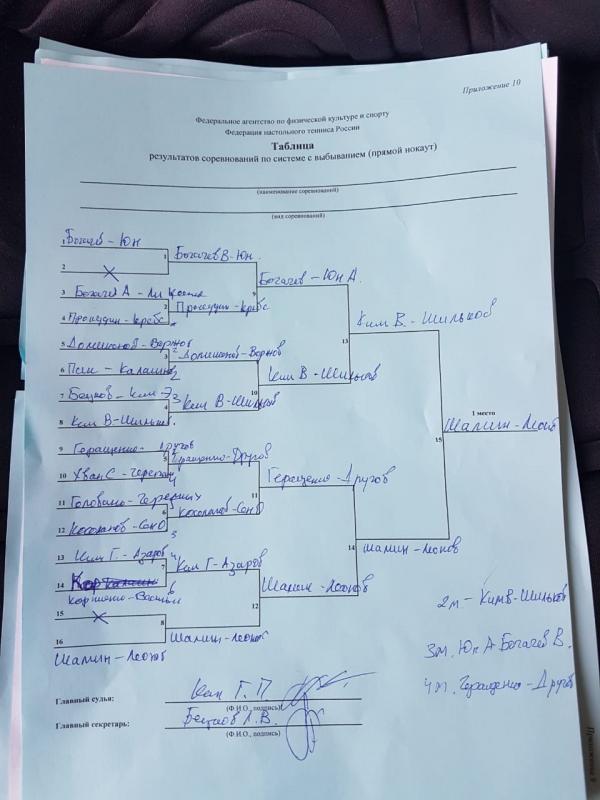 Приложение 10
Федеральное агентство по физической культуре и спорту
Федерация настольного тенниса России
Таблица
результатов соревнований по системе с выбыванием (прямой нокаут)
(наименование соревнований)
(вид соревнований)
1 Богачев - Юн
2
3 Богачев А - Ли
4 Проскудин - Кребс
5 Домешонов - Вернов
6 Пем - Калашн
7 Бецков - Ким Э
8 Ким В - Шильков
9 Геращенко - Другов
10 Хван С - Черепан
11 Головано -
12 Косолапов - Сон О
13 Ким Г. - Азаров
14
Каршенко -
15
16
Шалин - Леонов
1 Богачев В - Юн
2 Проскудин - Кребс
3 Домешонов - Вернов
4 Ким В - Шильков
5 Геращенко - Другов
6 Косолапов - Сон О
7 Ким Г - Азаров
8 Шалин - Леонов
9 Богачев - Юн А.
10 Ким В - Шильков
11 Геращенко - Другов
12 Шалин - Леонов
13 Ким В. - Шильков
14 Шалин - Леонов
1 место
15 Шалин - Леонов
2 м - Ким В - Шильков
3 м. Юн А Богачев В.
4 м. Геращенко - Другов
Главный судья: Ким Г. П
(Ф.И.О., подпись)
Главный секретарь: Бецков Л. В.
(Ф.И.О., подпись)